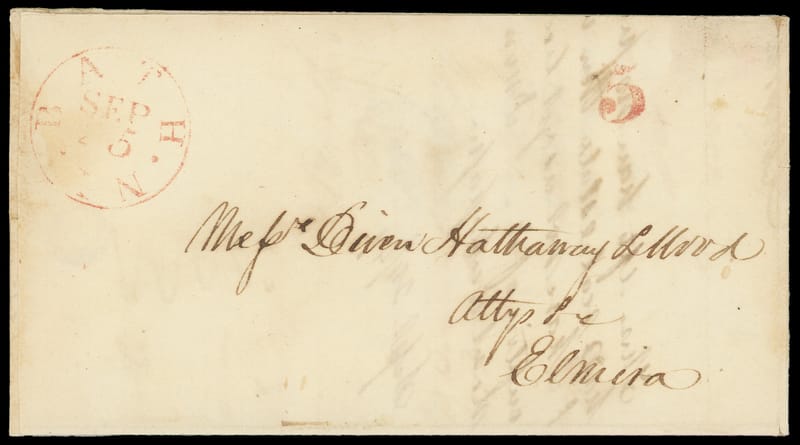 BATH N.Y.
SEP
5
Messrs Diven Hathaway & Wood
Attys &c
Elmira